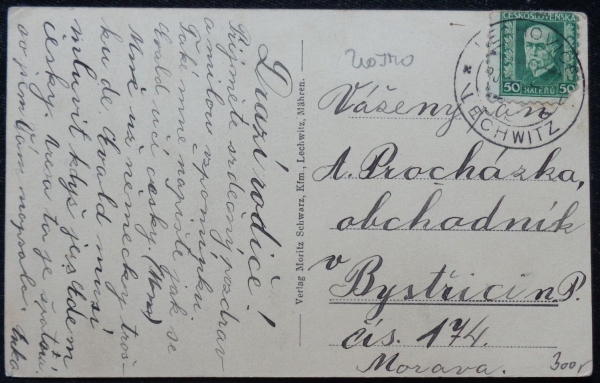 Drazí rodiče!
Přijměte srdečný pozdrav
a milou vzpomínku
Také mne napište jak se
Ewald učí česky. (Mans)
Mně už německy troš-
ku de Ewald musí
mluvit když jest dem
česky. Vrána ta je
co jsem Vám napsala. Anka
Verlag Moritz Schwarz, Kfm., Lechwitz, Mähren.
ČESKOSLOVENSKÁ
50 HALÉŘŮ 50
LECHWITZ
Vážený pan
A. Procházka,
obchodník
v
Bystřici n P.
čís. 174.
Morava.
300,